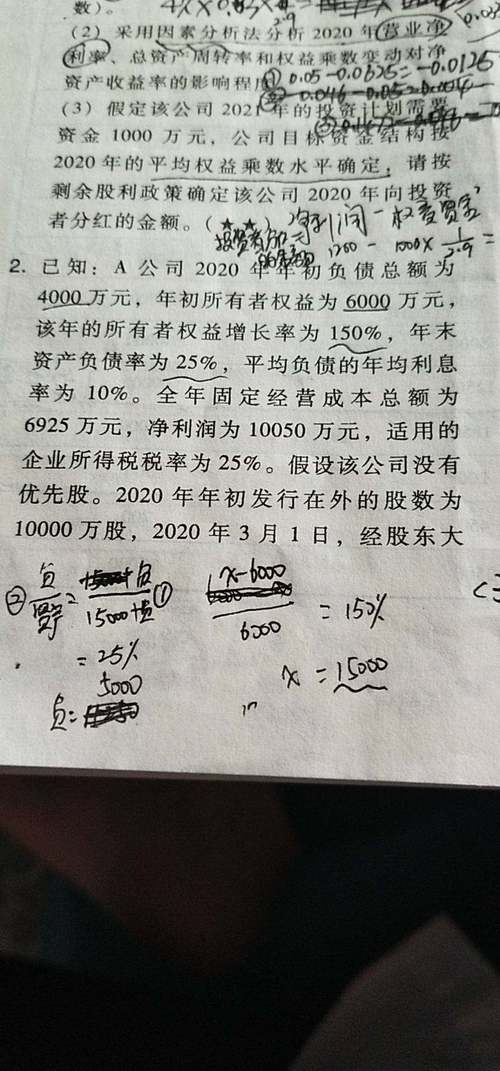 数）。
（2）采用因素分析法分析 2020 年营业净
利率、总资产周转率和权益乘数变动对净
资产收益率的影响程 ① 0.05-0.0625=-0.0125
（3）假定该公司 2021 年的投资计划需要
资金 1000 万元，公司目标资金结构按
2020 年的平均权益乘数水平确定，请按
剩余股利政策确定该公司 2020 年向投资
者分红的金额。（★★）净利润-权益资金
2. 已知：A 公司 2020 年年初负债总额为
4000 万元，年初所有者权益为 6000 万元，
该年的所有者权益增长率为 150%，年末
资产负债率为 25%，平均负债的年均利息
率为 10%。全年固定经营成本总额为
6925 万元，净利润为 10050 万元，适用的
企业所得税税率为 25%。假设该公司没有
优先股。2020 年年初发行在外的股数为
10000 万股，2020 年 3 月 1 日，经股东大
① x-6000
6000
= 150%
x = 15000
② 负
=
15000+负
= 25%
负= 5000